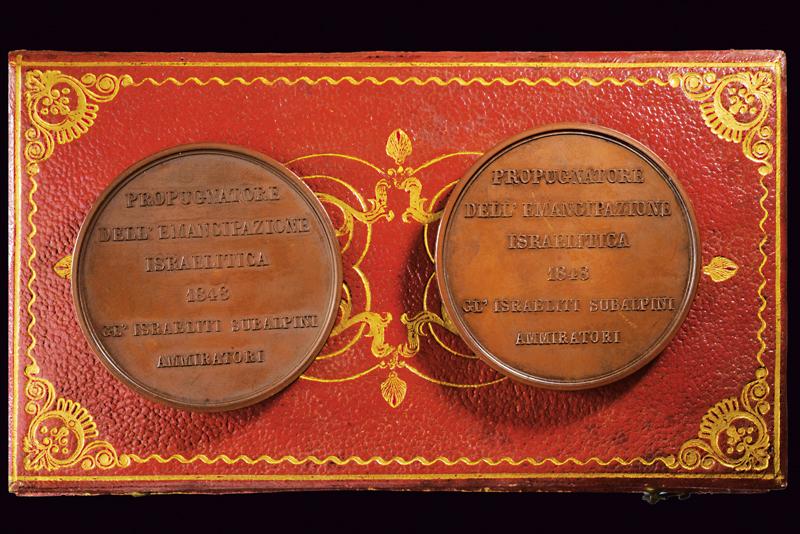 PROPUGNATORE
DELL' EMANCIPAZIONE
ISRAELITICA
1848
GL' ISRAELITI SUBALPINI
AMMIRATORI
PROPUGNATORE
DELL' EMANCIPAZIONE
ISRAELITICA
1848
GL' ISRAELITI SUBALPINI
AMMIRATORI